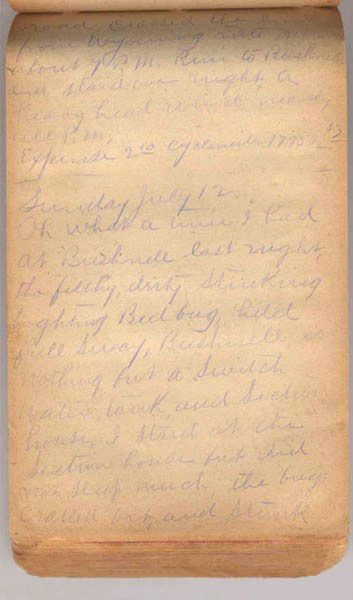 road, crossed the line
from Wyoming into
about 7 P.M. Run to Bushnell
and staid over night, a
heavy head wind nearly
all P.M.
Expense 2 10 Cyclometer 1795
Sunday July 12
Oh what a time I had
at Bushnell last night,
the filthy, dirty, stinking
bighting Bed bug held
full sway, Bushnell is
nothing but a switch
water tank and section
house, I staid at the
section house but did
not sleep much, the bugs
cralled out and stunk